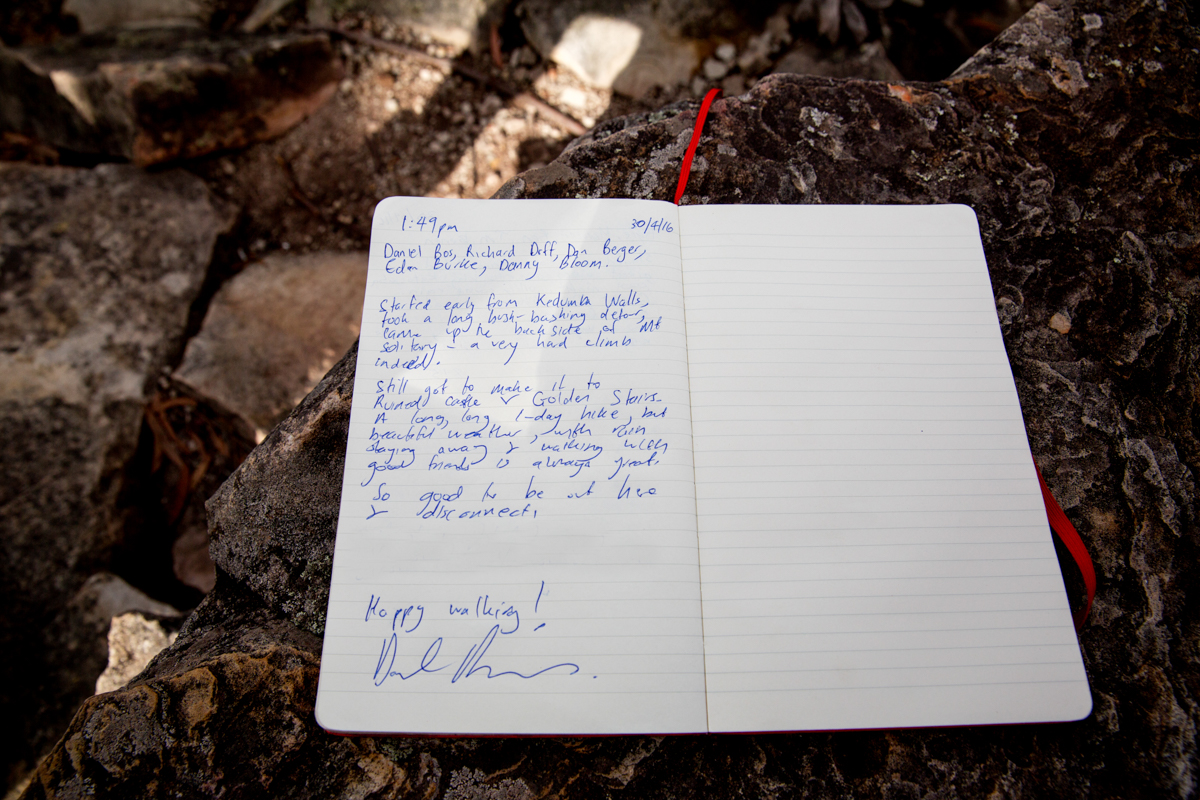 1:49pm 30/4/16
Daniel Bos, Richard Doff, Dan Berger,
Eden Burke, Danny Bloom.
Started early from Kedumba Walls,
took a long bush-bashing detour,
came up the backside of Mt
solitary - a very hard climb
indeed.
Still got to make it to
Ruined Castle & Golden Stairs.
A long, long 1-day hike, but
beautiful weather, with rain
staying away & walking with
good friends is always great.
So good to be out here
& disconnect.
Happy walking!